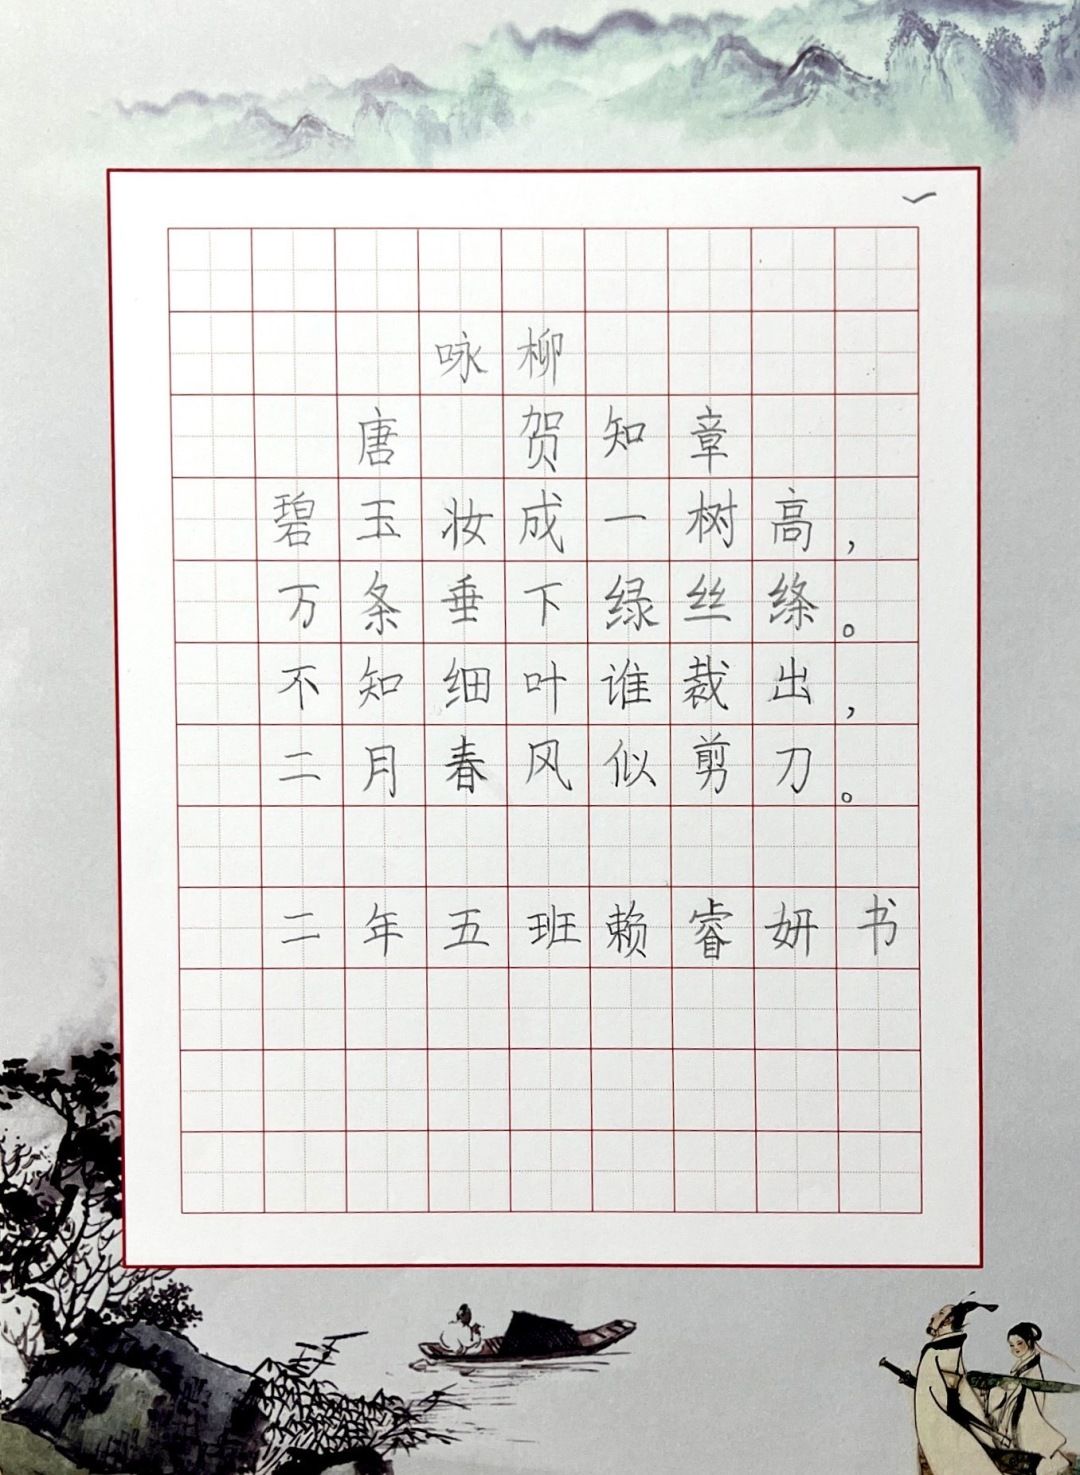 咏柳
唐 贺知章
碧玉妆成一树高，
万条垂下绿丝绦。
不知细叶谁裁出，
二月春风似剪刀。
二年五班赖睿妍书